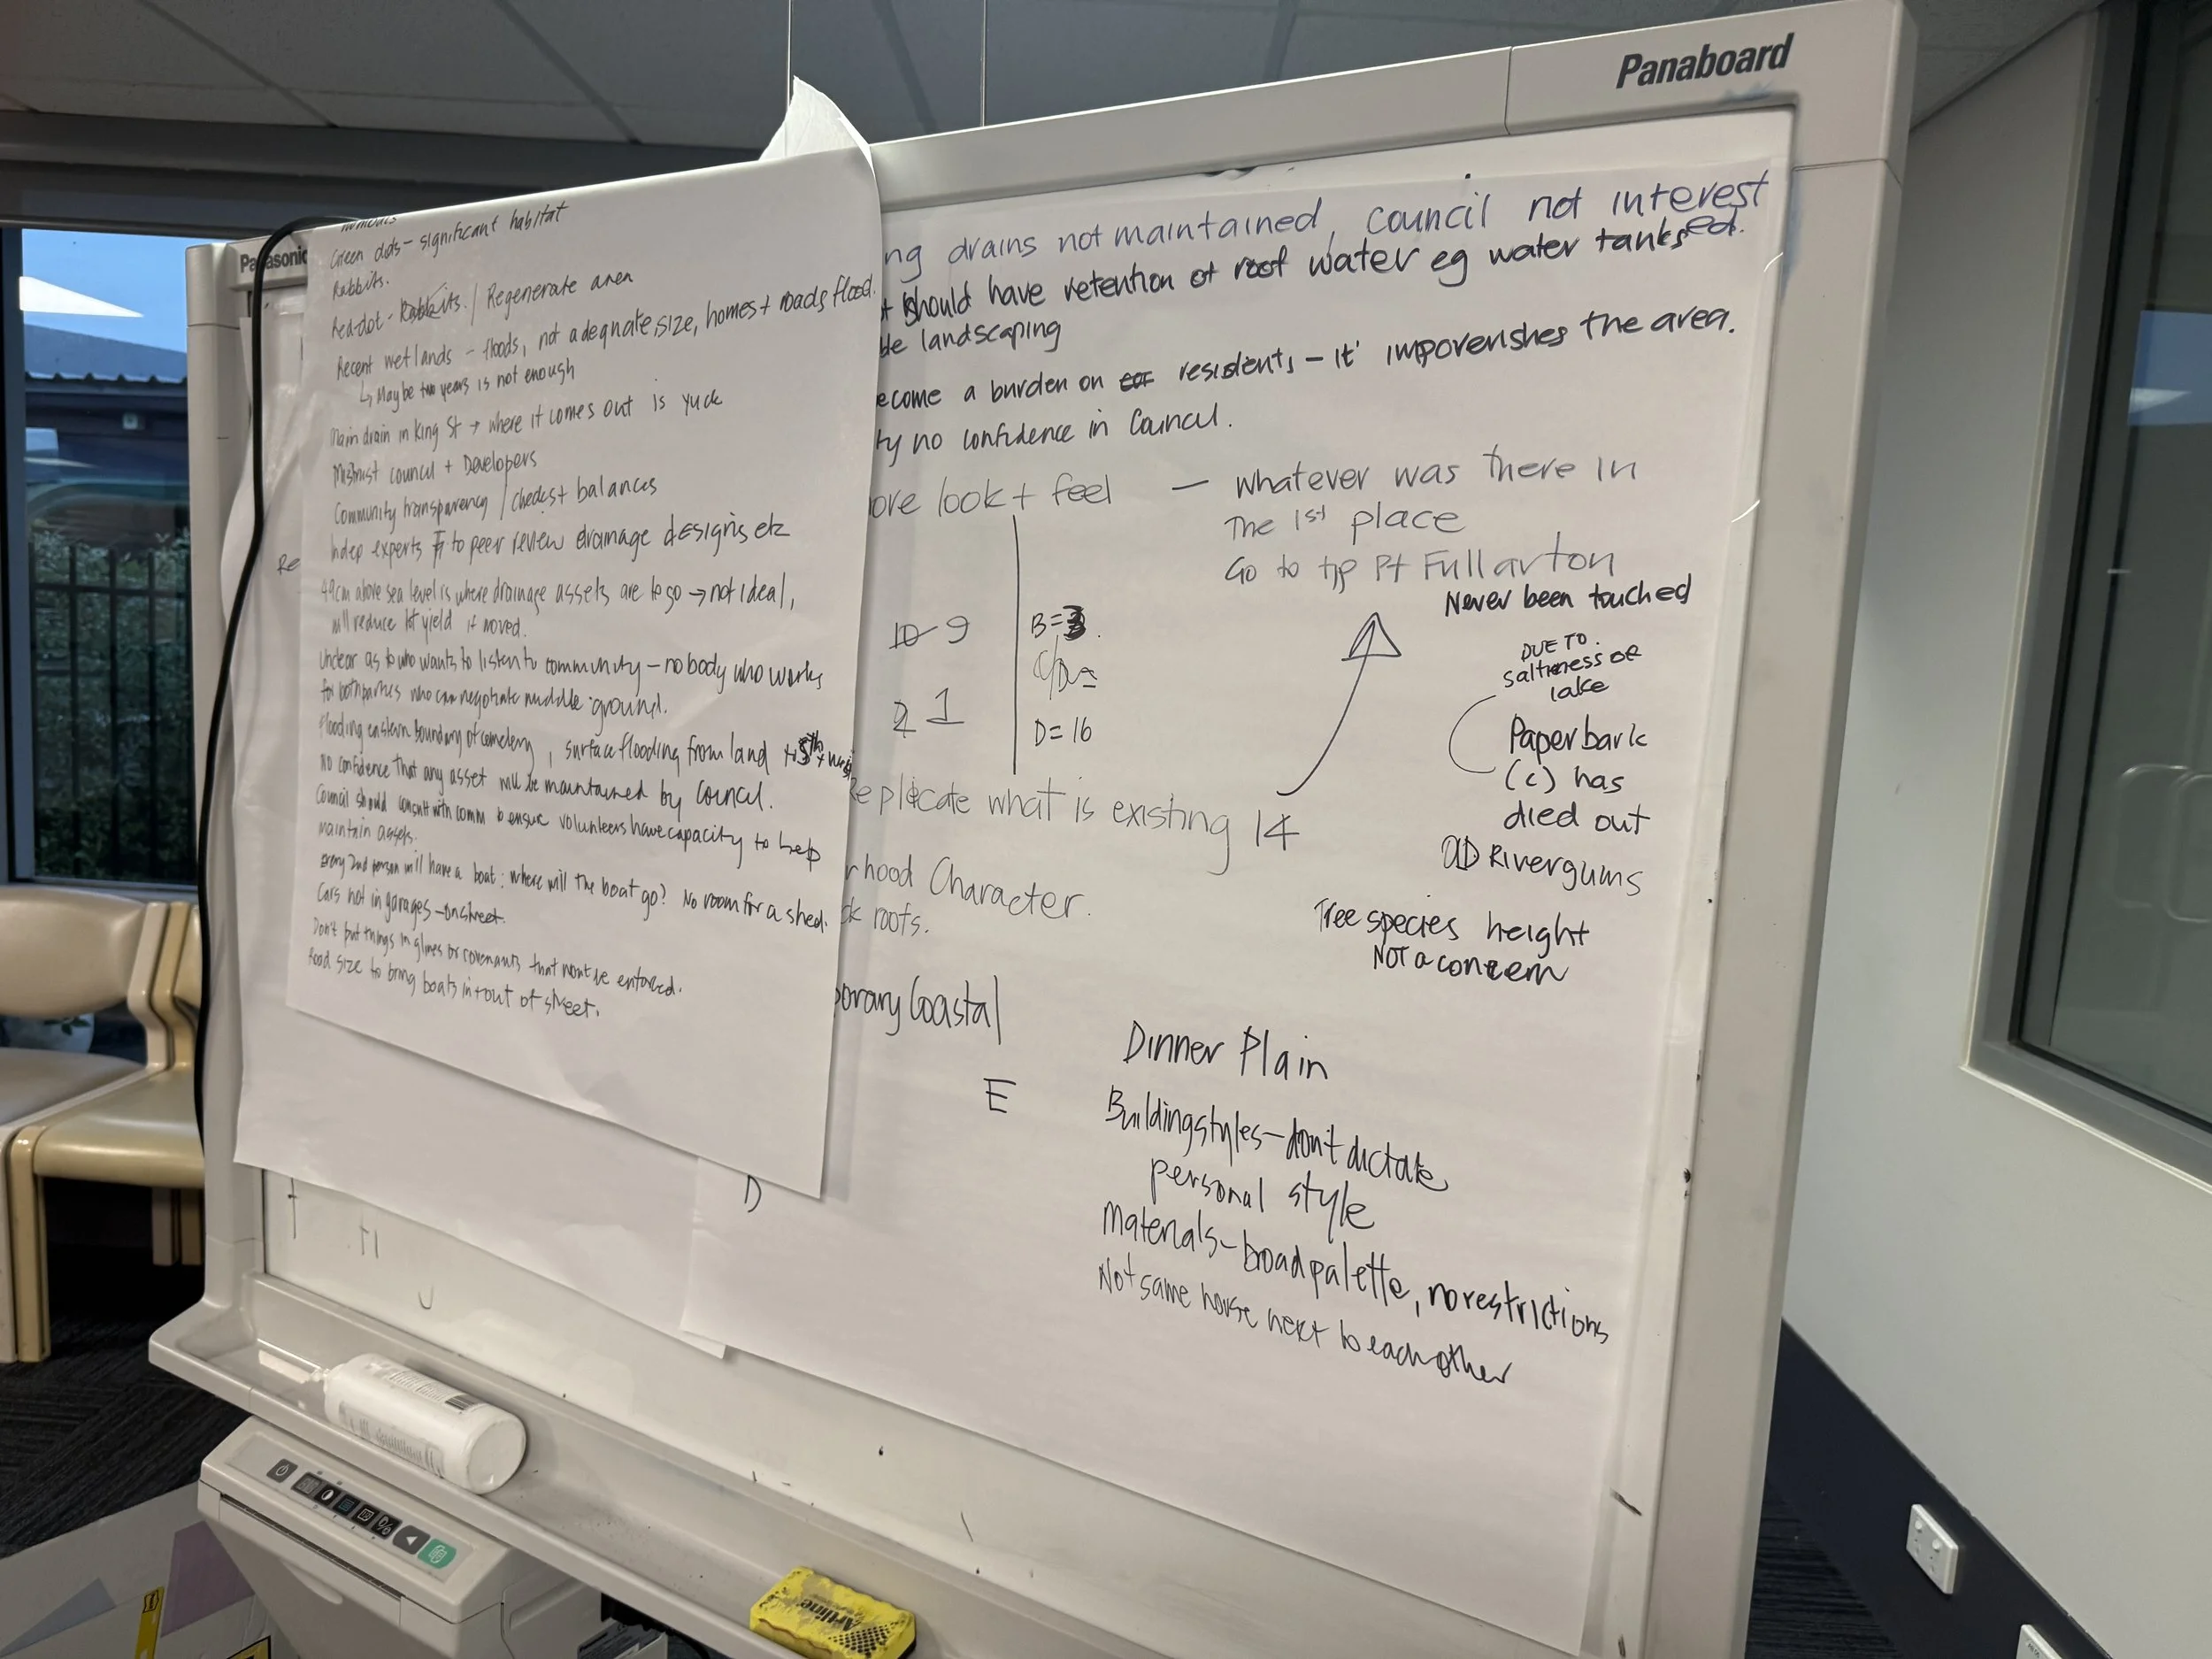 Panaboard
Panasonic
Green dots - significant habitat
Rabbits.
Red dot - Rabbits. / Regenerate area
Recent wetlands - floods, not adequate size, homes + roads flood.
↳ Maybe two years is not enough
Main drain in King St → where it comes out is yuck
Mistrust council + Developers
Community transparency / checks + balances
Indep experts to peer review drainage designs etc
49cm above sea level is where drainage assets are to go → not ideal,
will reduce lot yield if moved.
Unclear as to who wants to listen to community - nobody who works
for both parties who can negotiate middle ground.
Flooding eastern boundary of cemetery, surface flooding from land
No confidence that any asset will be maintained by Council.
Council should consult with comm to ensure volunteers have capacity to help
maintain assets.
Every 2nd person will have a boat: where will the boat go? No room for a shed.
Cars not in garages - on street.
Don't put things in glines or covenants that won't be enforced.
Road size to bring boats in + out of street.
Re
ng drains not maintained, council not interest
ed.
should have retention of roof water eg water tanks
landscaping
ecome a burden on residents - it impoverishes the area.
ty no confidence in Council.
ore look + feel - whatever was there in
The 1st place
Go to tip Pt Fullarton
Never been touched
10 9
B=3
C/D=
2 1
D=16
DUE TO
saltiness of
lake
Paperbark
(c) has
died out
QLD Rivergums
Replicate what is existing 14
rhood Character.
ck roofs.
Tree species height
Not a concern
porary Coastal
E
D
Dinner Plain
Building styles - don't dictate
personal style
Materials - broad palette, no restrictions
Not same house next to each other
Artline